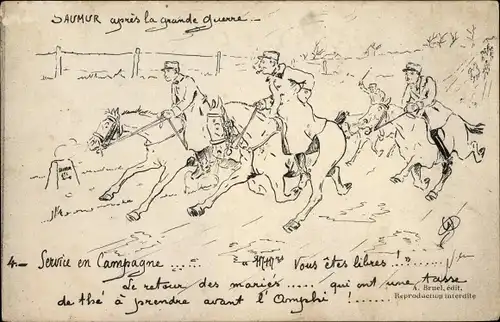 SAUMUR après la grande guerre._
4._ Service en Campagne ...... " Vous êtes libres ! " ........
Le retour des mariés ..... qui ont une tasse
de thé à prendre avant l'Amphi ! .......
A. Bruel, édit.
Reproduction interdite